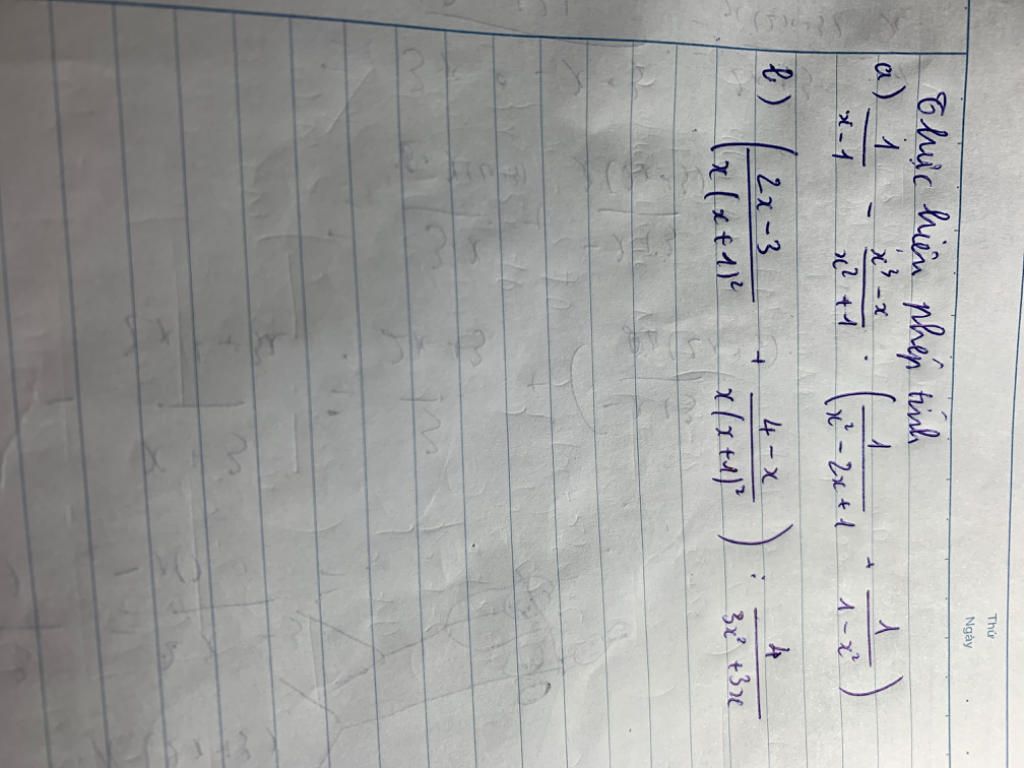 Thứ
Ngày
Thực hiện phép tính
a) \frac{1}{x-1} - \frac{x^3-x}{x^2+1} \cdot \left(\frac{1}{x^2-2x+1} + \frac{1}{1-x^2}\right)
b) \left(\frac{2x-3}{x(x+1)^2} + \frac{4-x}{x(x+1)^2}\right) : \frac{4}{3x^2+3x}